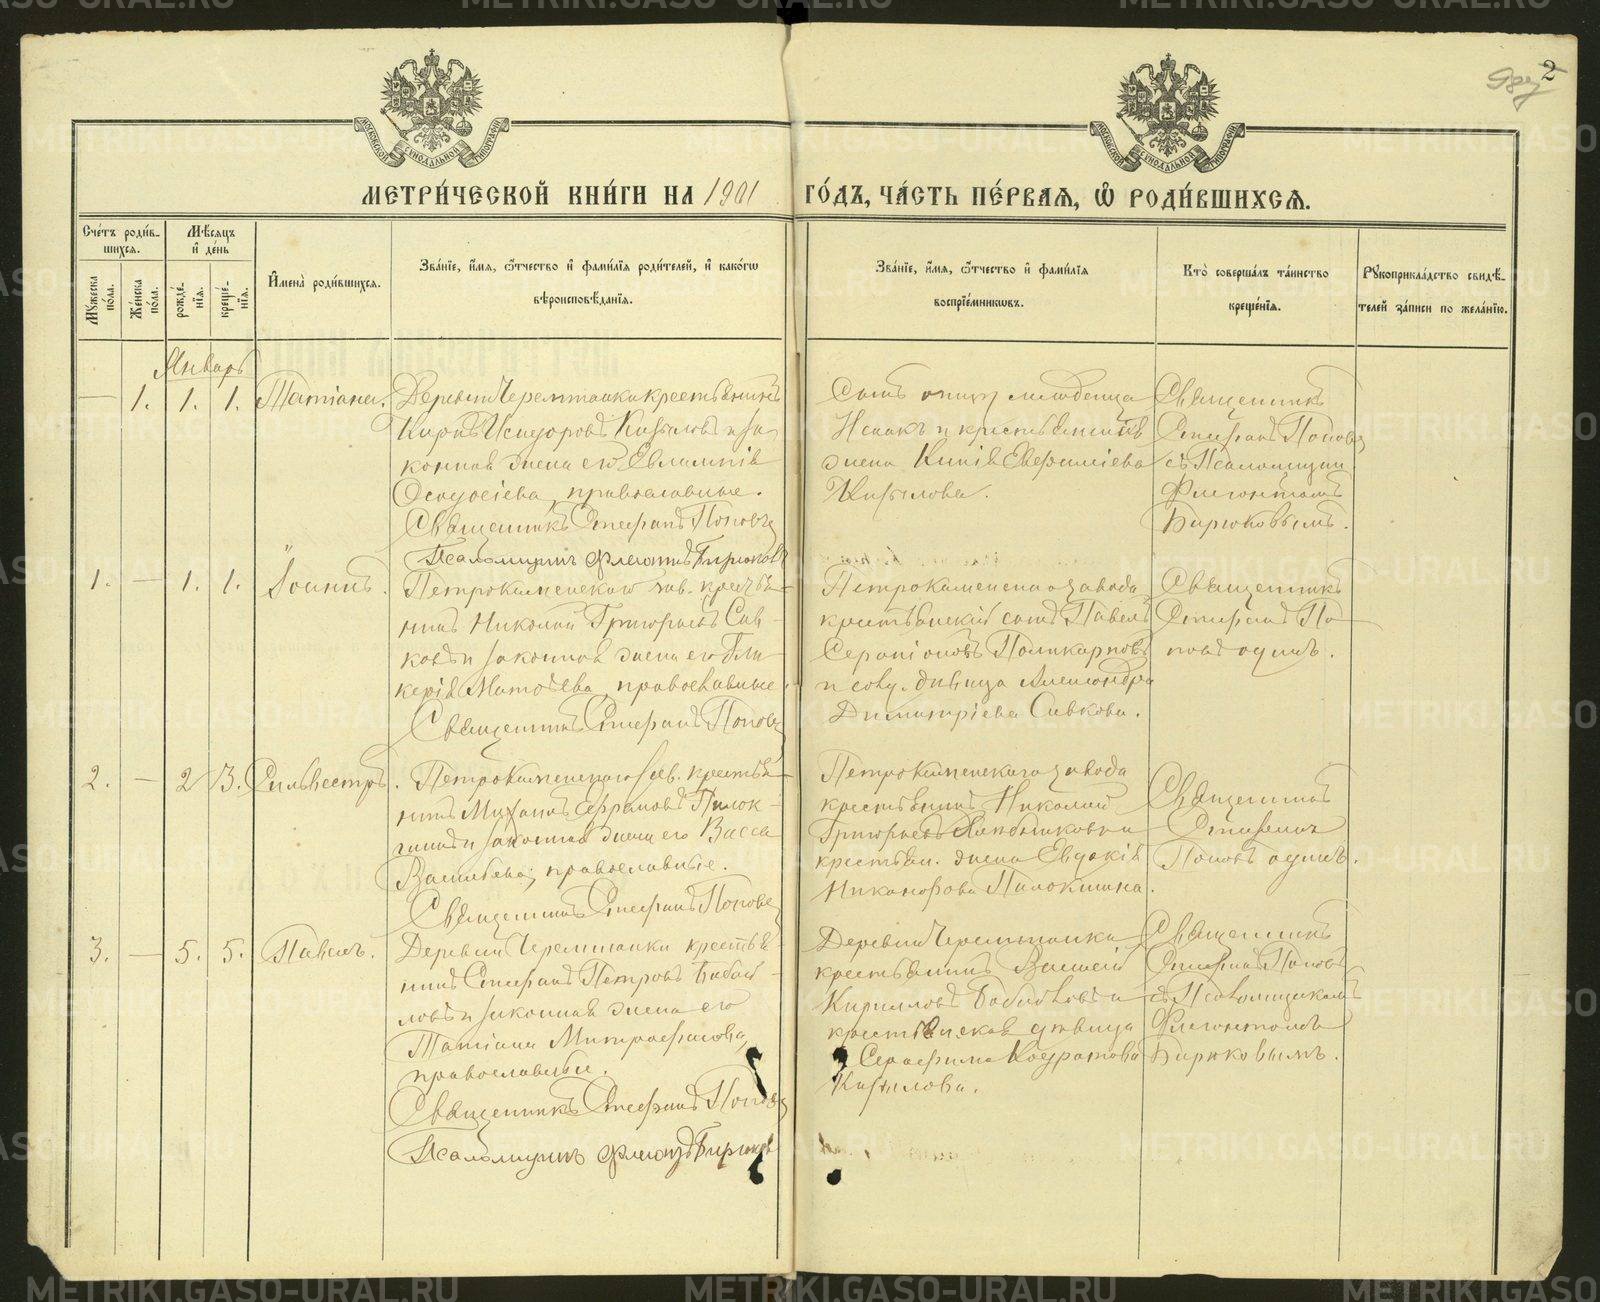 2
МЕТРИ́ЧЕСКОЙ КНИ́ГИ НА 1901 ГО́ДЪ, ЧА́СТЬ ПЕ́РВАЯ, Ѽ РОДИ́ВШИХСЯ.
МОСКОВСКОЙ СѴНОДАЛЬНОЙ ТИПОГРАФІИ
МОСКОВСКОЙ СѴНОДАЛЬНОЙ ТИПОГРАФІИ
Сче́тъ роди́в-
шихся.
Му́жеска по́ла.
Же́нска по́ла.
Мѣ́сяцъ
и де́нь
рожде́-
нїя.
креще́-
нїя.
Имена̀ роди́вшихся.
Зва́нїе, и́мя, ѻ́тчество и фами́лїя роди́телей, и како́гѡ
вѣроисповѣ́данїя.
Зва́нїе, и́мя, ѻ́тчество и фами́лїя
воспрїе́мникѡвъ.
Кто̀ соверша́лъ та́инство
креще́нїя.
Рꙋкоприкла́дство свидѣ́-
телей за́писи по жела́нїю.
Январь
— 1. 1. 1. Татіана.
Деревни Черемшанки крестьянинъ
Киръ Исидоровъ Кизиловъ и за-
конная жена его Евлампія
Ѳеодосіева, православные.
Священникъ Стефанъ Поповъ
Псаломщикъ Флегонтъ Бирюковъ
младенца
Исаакъ и крестьянина
жена Евфиміева
Священникъ
Стефанъ Поповъ
съ Псаломщик
Флегонтомъ
Бирюковымъ.
1. — 1. 1. Іоаннъ.
Петрокаменскаго зав. крестья-
нинъ Николай Григорьевъ Сав-
ковъ и законная жена его Гли-
керія Матѳѣева, православные.
Священникъ Стефанъ Поповъ
Петрокаменскаго завода
крестьянскій сынъ Павелъ
Серапіоновъ Поликарповъ
и дѣвица Александра
Димитріева Савкова.
Священникъ
Стефанъ По-
повъ одинъ.
2. — 2 3. Сильвестръ.
Петрокаменскаго зав. крестья-
нинъ Ефрамовъ
и законная жена его Васса
Васильева, православные.
Священникъ Стефанъ Поповъ
Петрокаменскаго завода
крестьянинъ Николай
Григорьевъ и
крестьян. жена Евдокія
Никанорова
Священникъ
Стефанъ
Поповъ одинъ.
3. — 5. 5. Павелъ.
Деревни Черемшанки крестья-
нинъ Стефанъ Петровъ
и законная жена его
Татіана Митрофанова,
православные.
Священникъ Стефанъ Поповъ
Псаломщикъ Флегонтъ Бирюковъ
Деревни Черемшанки
крестьянинъ Василій
Кирилловъ и
крестьянская дѣвица
Серафима Кодратова
Кизилова.
Священникъ
Стефанъ Поповъ
съ Псаломщикомъ
Флегонтомъ
Бирюковымъ.
METRIKI.GASO-URAL.RU